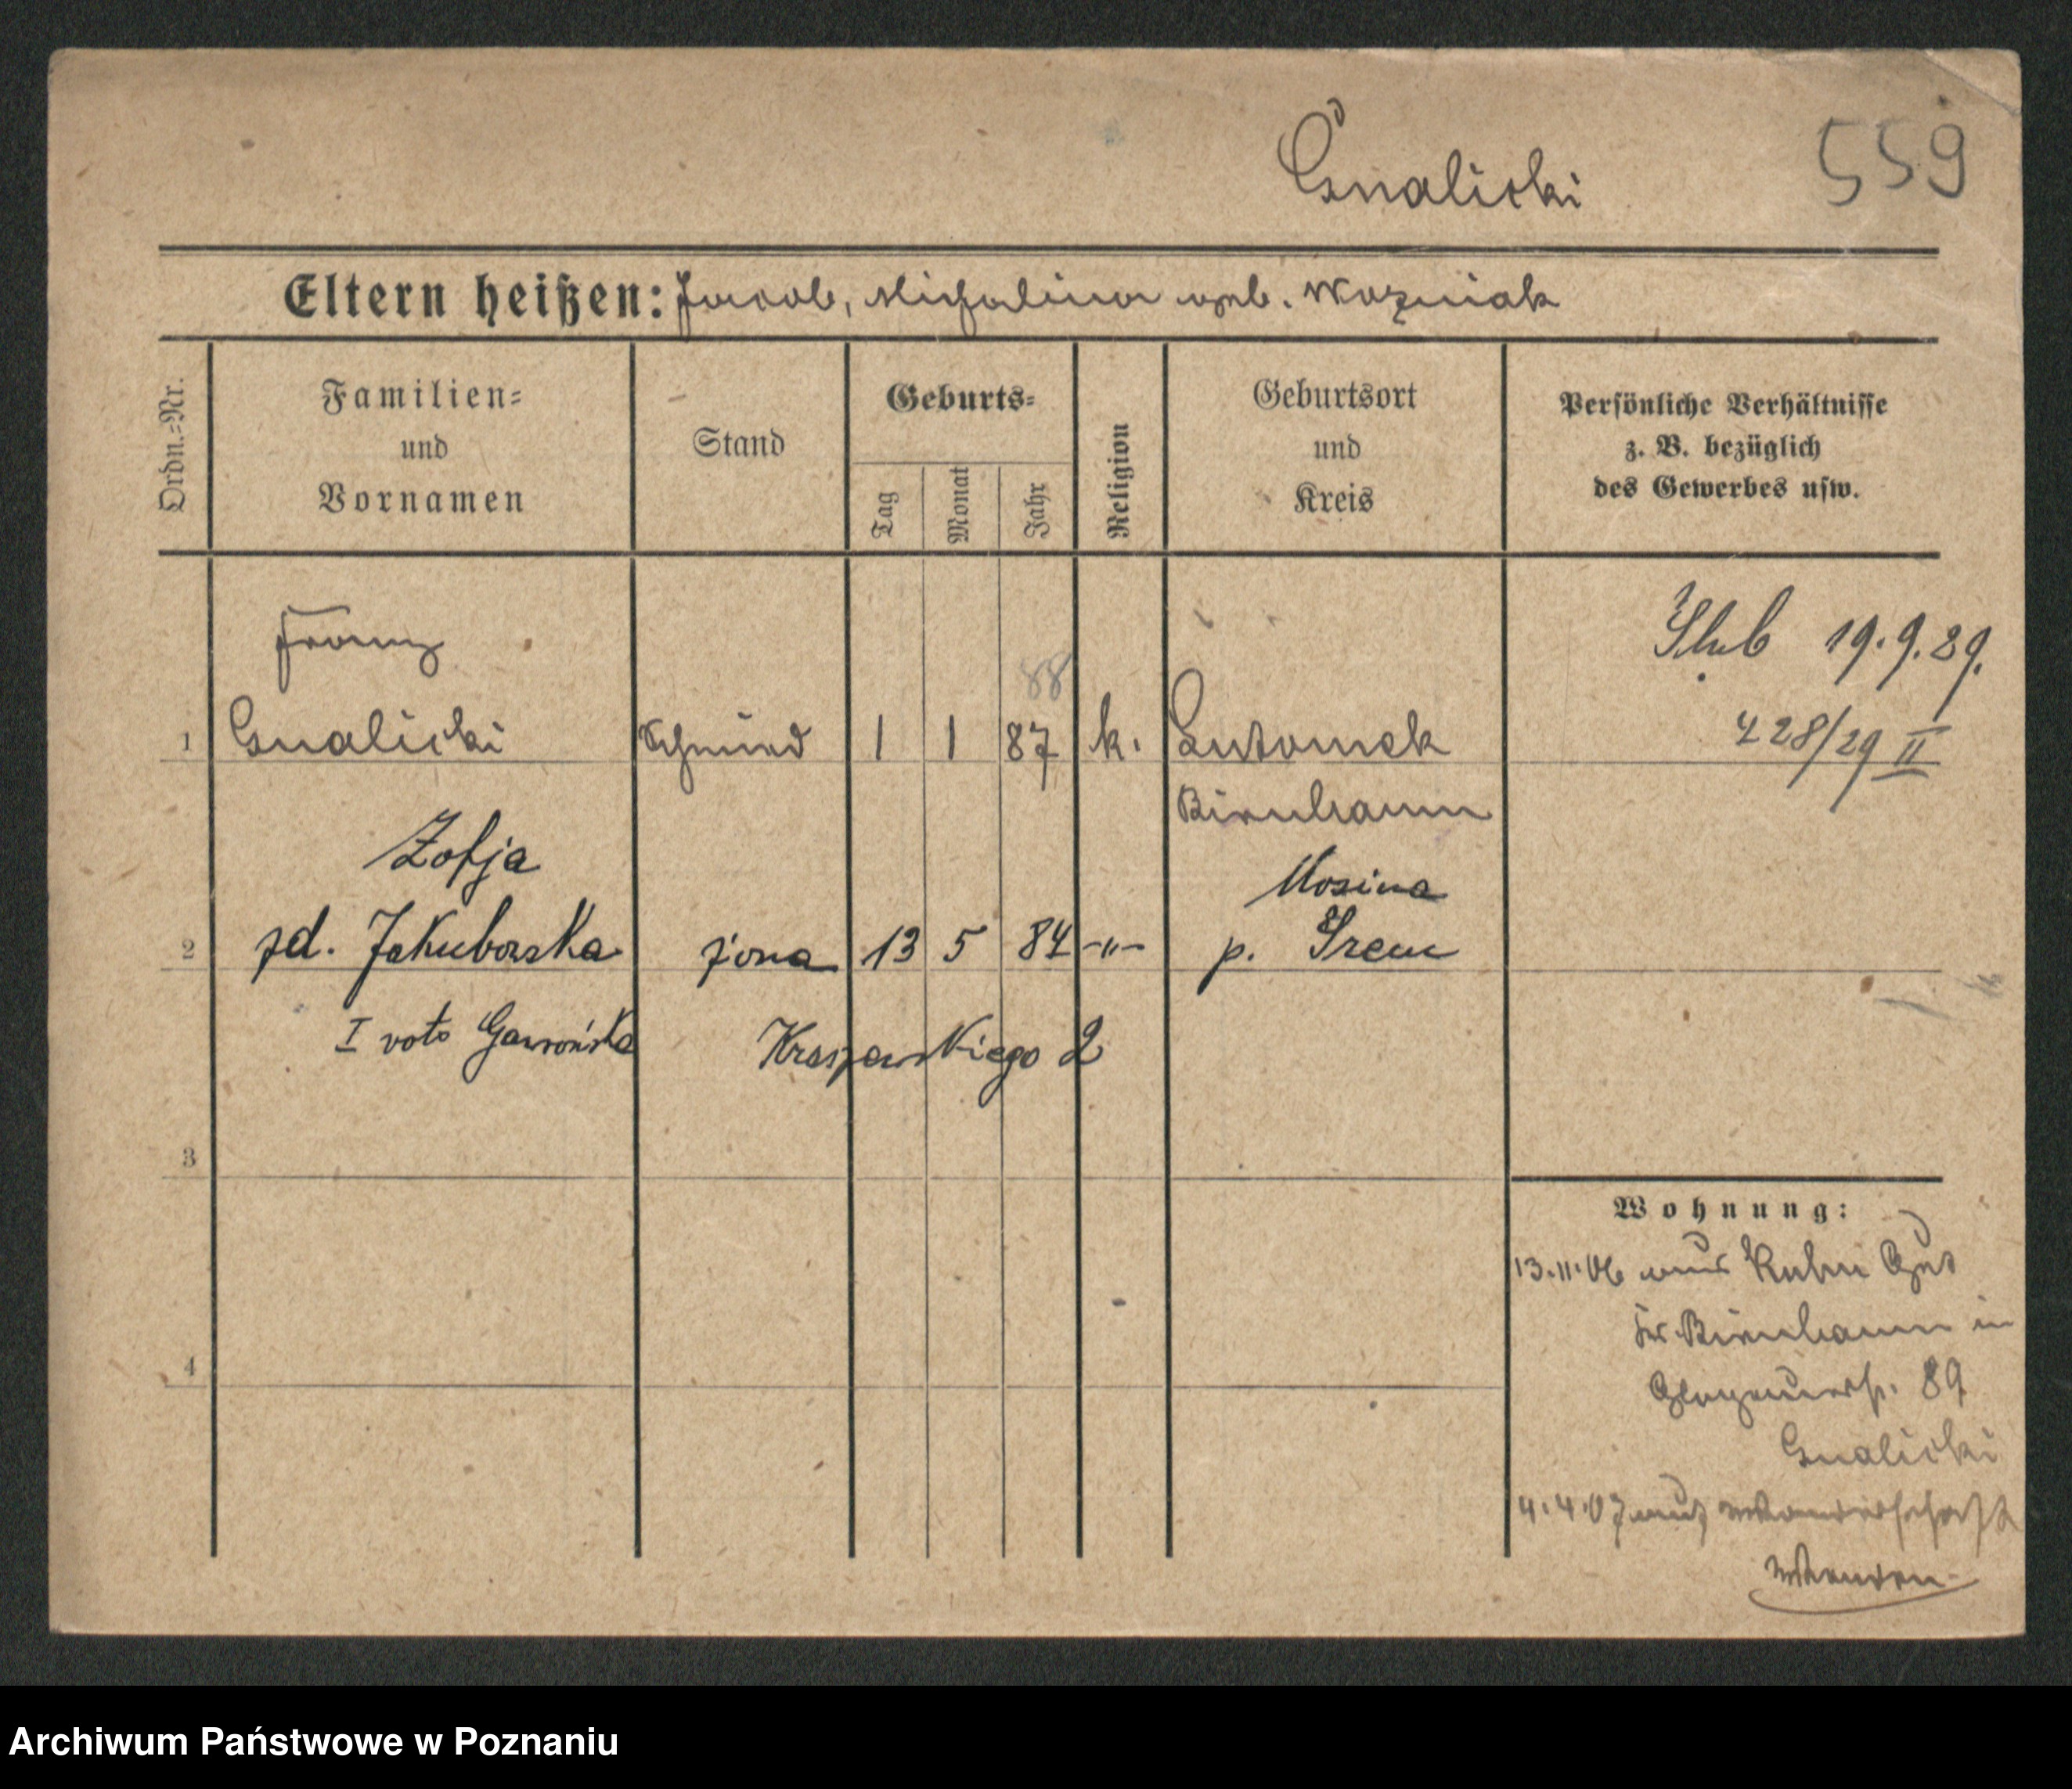 Gnalicki
559
Eltern heißen: Jacob, Michalina geb. Wozniak
Ordn.=Nr.
Familien=
und
Vornamen
Stand
Geburts=
Tag
Monat
Jahr
Religion
Geburtsort
und
Kreis
Persönliche Verhältnisse
z. B. bezüglich
des Gewerbes usw.
Franz
88
1 Gnalicki Schmied 1 1 87 k. Lutomek
Birnbaum
Ślub 19.9.29.
428/29 II
Zofja
Mosina
2 zd. Jakubowska żona 13 5 84 -"- p. Śrem
I voto Gawrońska Kraszewskiego 2
3
4
Wohnung:
13.11.06 aus Gut
Kr. Birnbaum in
Glogauerstr. 89
Gnalicki
4.4.07 auf Wanderschaft